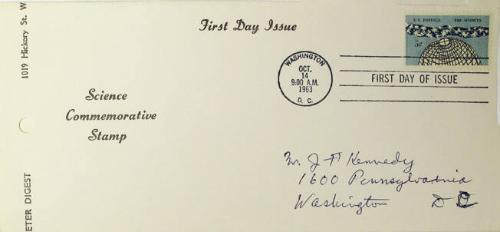 First Day Issue
U.S. POSTAGE THE SCIENCES
5¢
WASHINGTON
OCT.
14
9:00 A.M.
1963
D. C.
FIRST DAY OF ISSUE
Science
Commemorative
Stamp
Mr. J F Kennedy
1600 Pennsylvania
Washington D C
1019 Hickory St. W
ETER DIGEST